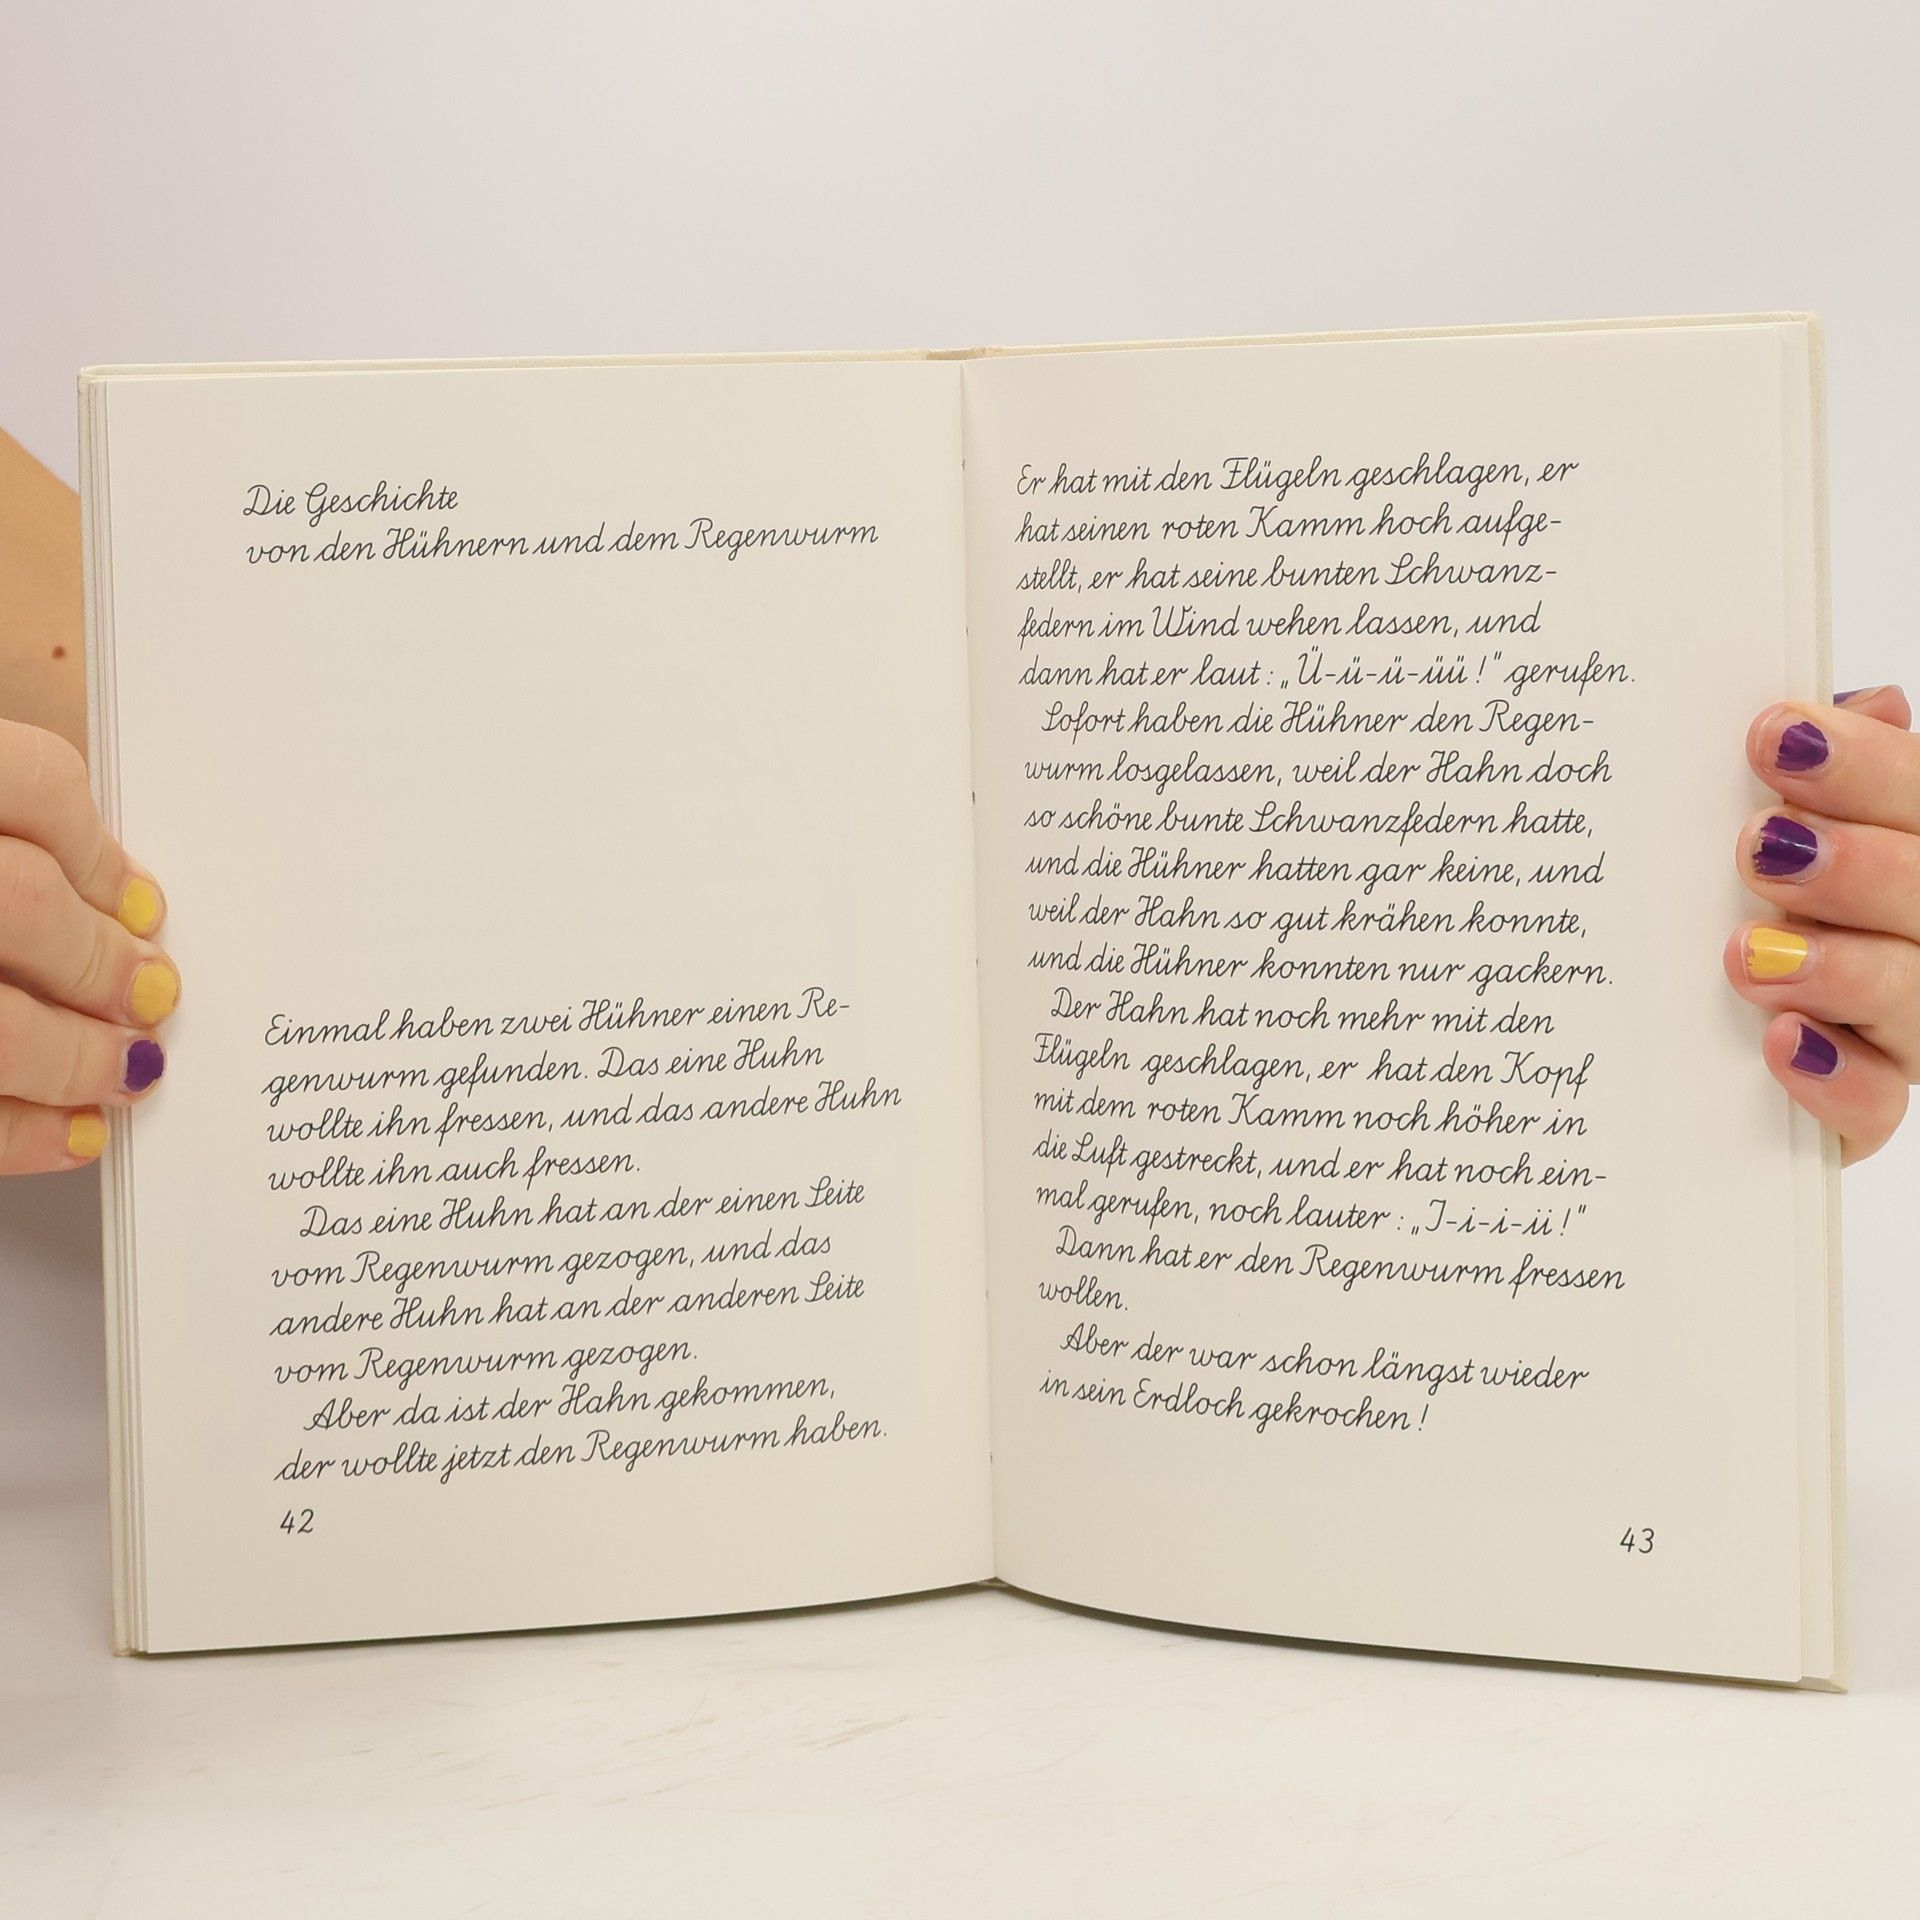 Die Geschichte
von den Hühnern und dem Regenwurm
Einmal haben zwei Hühner einen Re-
genwurm gefunden. Das eine Huhn
wollte ihn fressen, und das andere Huhn
wollte ihn auch fressen.
Das eine Huhn hat an der einen Seite
vom Regenwurm gezogen, und das
andere Huhn hat an der anderen Seite
vom Regenwurm gezogen.
Aber da ist der Hahn gekommen,
der wollte jetzt den Regenwurm haben.
42
Er hat mit den Flügeln geschlagen, er
hat seinen roten Kamm hoch aufge-
stellt, er hat seine bunten Schwanz-
federn im Wind wehen lassen, und
dann hat er laut: „Ü-ü-ü-üü!" gerufen.
Sofort haben die Hühner den Regen-
wurm losgelassen, weil der Hahn doch
so schöne bunte Schwanzfedern hatte,
und die Hühner hatten gar keine, und
weil der Hahn so gut krähen konnte,
und die Hühner konnten nur gackern.
Der Hahn hat noch mehr mit den
Flügeln geschlagen, er hat den Kopf
mit dem roten Kamm noch höher in
die Luft gestreckt, und er hat noch ein-
mal gerufen, noch lauter: „I-i-i-ii!"
Dann hat er den Regenwurm fressen
wollen.
Aber der war schon längst wieder
in sein Erdloch gekrochen!
43